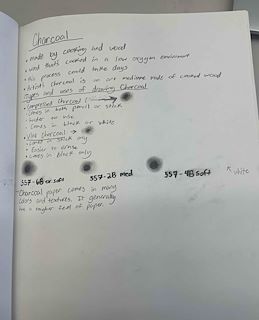 Charcoal
• made by cooking wood
• wood that's cooked in a low oxygen environment
• this process could take days
• Artists charcoal is an art medium made of wood
Types and uses of drawing Charcoal
• Compressed Charcoal
- Comes in both pencil or stick
- harder to use
- Comes in black or white
• Vine Charcoal →
- Comes in stick only
- Easier to erase
- Comes in black only
557-6B soft 557-2B med 557-4B soft
white
- Charcoal paper comes in many
colors and textures. It generally
has a rougher feel of paper.